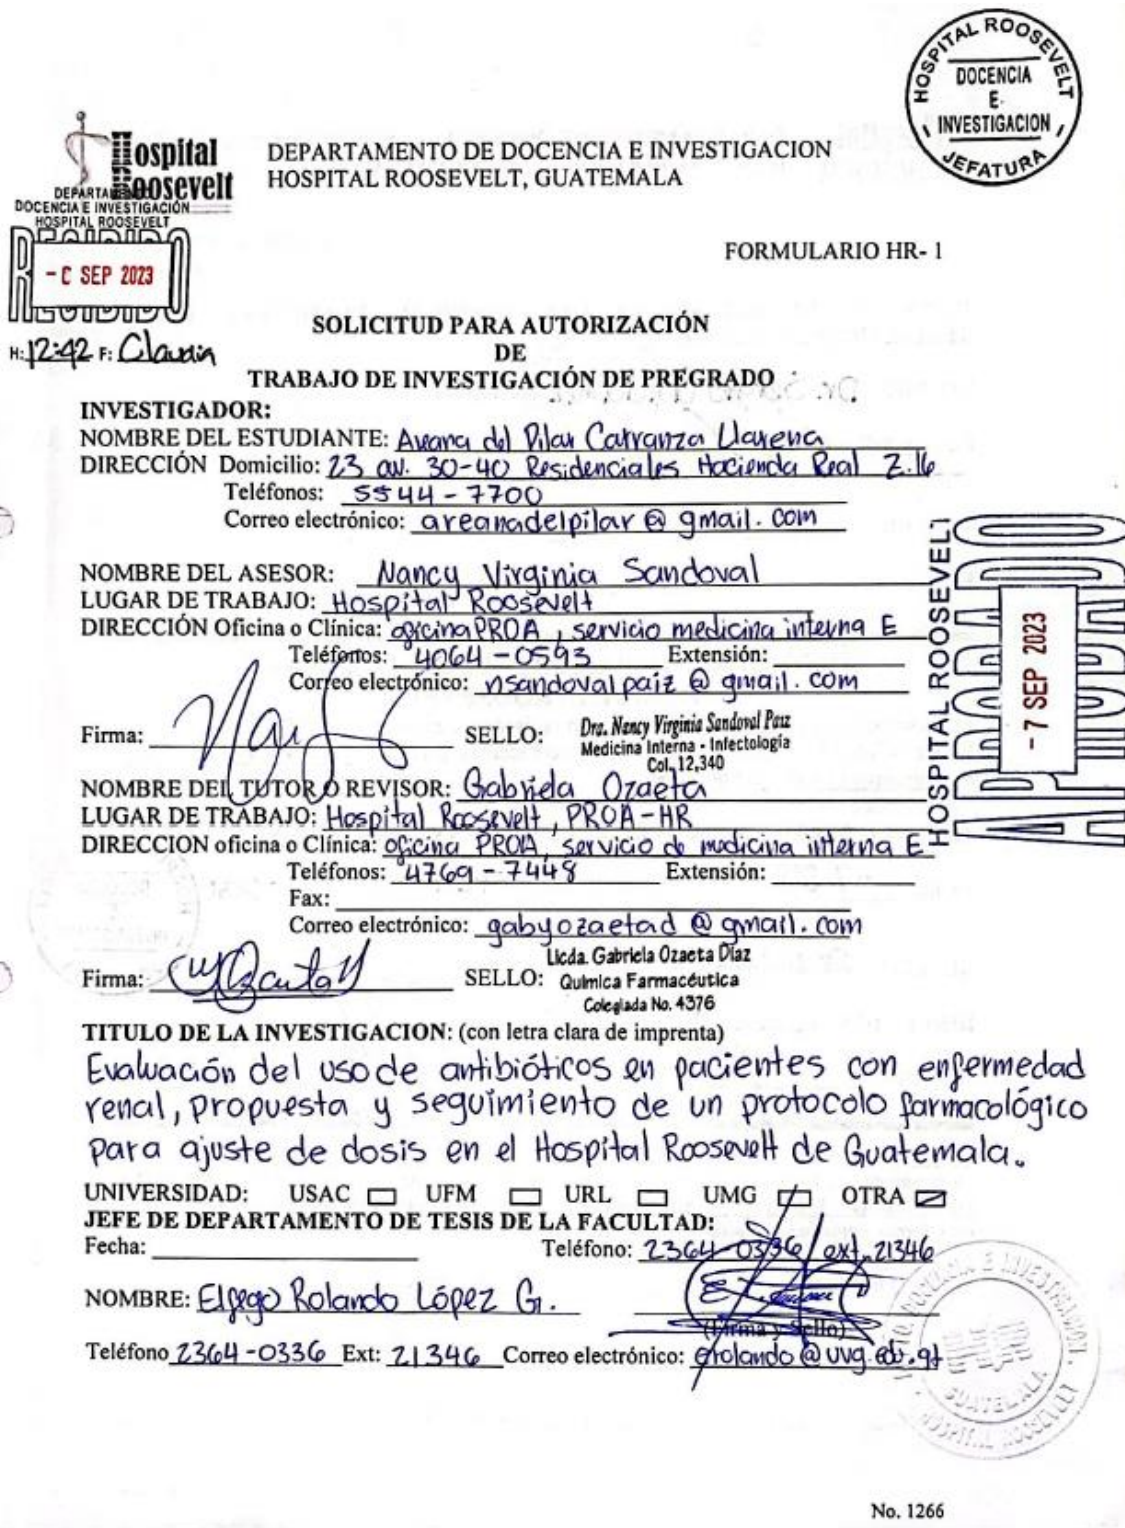 HOSPITAL ROOSEVELT
DOCENCIA
E.
INVESTIGACION
JEFATURA
Hospital
Roosevelt
DEPARTAMENTO DE DOCENCIA E INVESTIGACION
HOSPITAL ROOSEVELT, GUATEMALA
DEPARTAMENTO
DOCENCIA E INVESTIGACIÓN
HOSPITAL ROOSEVELT
RECIBIDO
SEP 2023
H: 12:42 F: Claudia
FORMULARIO HR- 1
SOLICITUD PARA AUTORIZACIÓN
DE
TRABAJO DE INVESTIGACIÓN DE PREGRADO
INVESTIGADOR:
NOMBRE DEL ESTUDIANTE: del Pilar Catranza Llarena
DIRECCIÓN Domicilio: 23 av. 30-40 Residenciales Hacienda Real Z.16
Teléfonos: 5544-7700
Correo electrónico: areanadelpilar@gmail.com
NOMBRE DEL ASESOR: Nancy Virginia Sandoval
LUGAR DE TRABAJO: Hospital Roosevelt
DIRECCIÓN Oficina o Clínica: oficina PROA, servicio medicina interna E
Teléfonos: 4064-0593 Extensión:
Correo electrónico: nsandovalpaiz@gmail.com
Firma: SELLO: Dra. Nancy Virginia Sandoval Paiz
Medicina Interna - Infectología
Col. 12,340
HOSPITAL ROOSEVELT
APROBADO
- 7 SEP 2023
NOMBRE DEL TUTOR O REVISOR: Gabriela Ozaeta
LUGAR DE TRABAJO: Hospital Roosevelt, PROA-HR
DIRECCION oficina o Clínica: oficina PROA, servicio de medicina interna E
Teléfonos: 4769-7448 Extensión:
Fax:
Correo electrónico: gabyozaetad@gmail.com
Firma: SELLO: Licda. Gabriela Ozaeta Díaz
Química Farmacéutica
Colegiada No. 4376
TITULO DE LA INVESTIGACION: (con letra clara de imprenta)
Evaluación del uso de antibióticos en pacientes con enfermedad
renal, propuesta y seguimiento de un protocolo farmacológico
para ajuste de dosis en el Hospital Roosevelt de Guatemala.
UNIVERSIDAD: USAC UFM URL UMG OTRA
JEFE DE DEPARTAMENTO DE TESIS DE LA FACULTAD:
Fecha: Teléfono: 2364-0336 / ext. 21346
NOMBRE: Elfego Rolando López G.
(Firma y Sello)
Teléfono 2364-0336 Ext: 21346 Correo electrónico: erolando@uvg.edu.gt
GUATEMALA
HOSPITAL ROOSEVELT
No. 1266